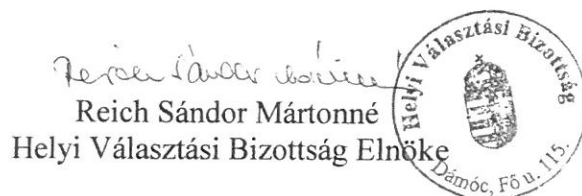 Reich Sándor Mártonné
Reich Sándor Mártonné
Helyi Választási Bizottság Elnöke
Helyi Választási Bizottság
Dámóc, Fő u. 115.